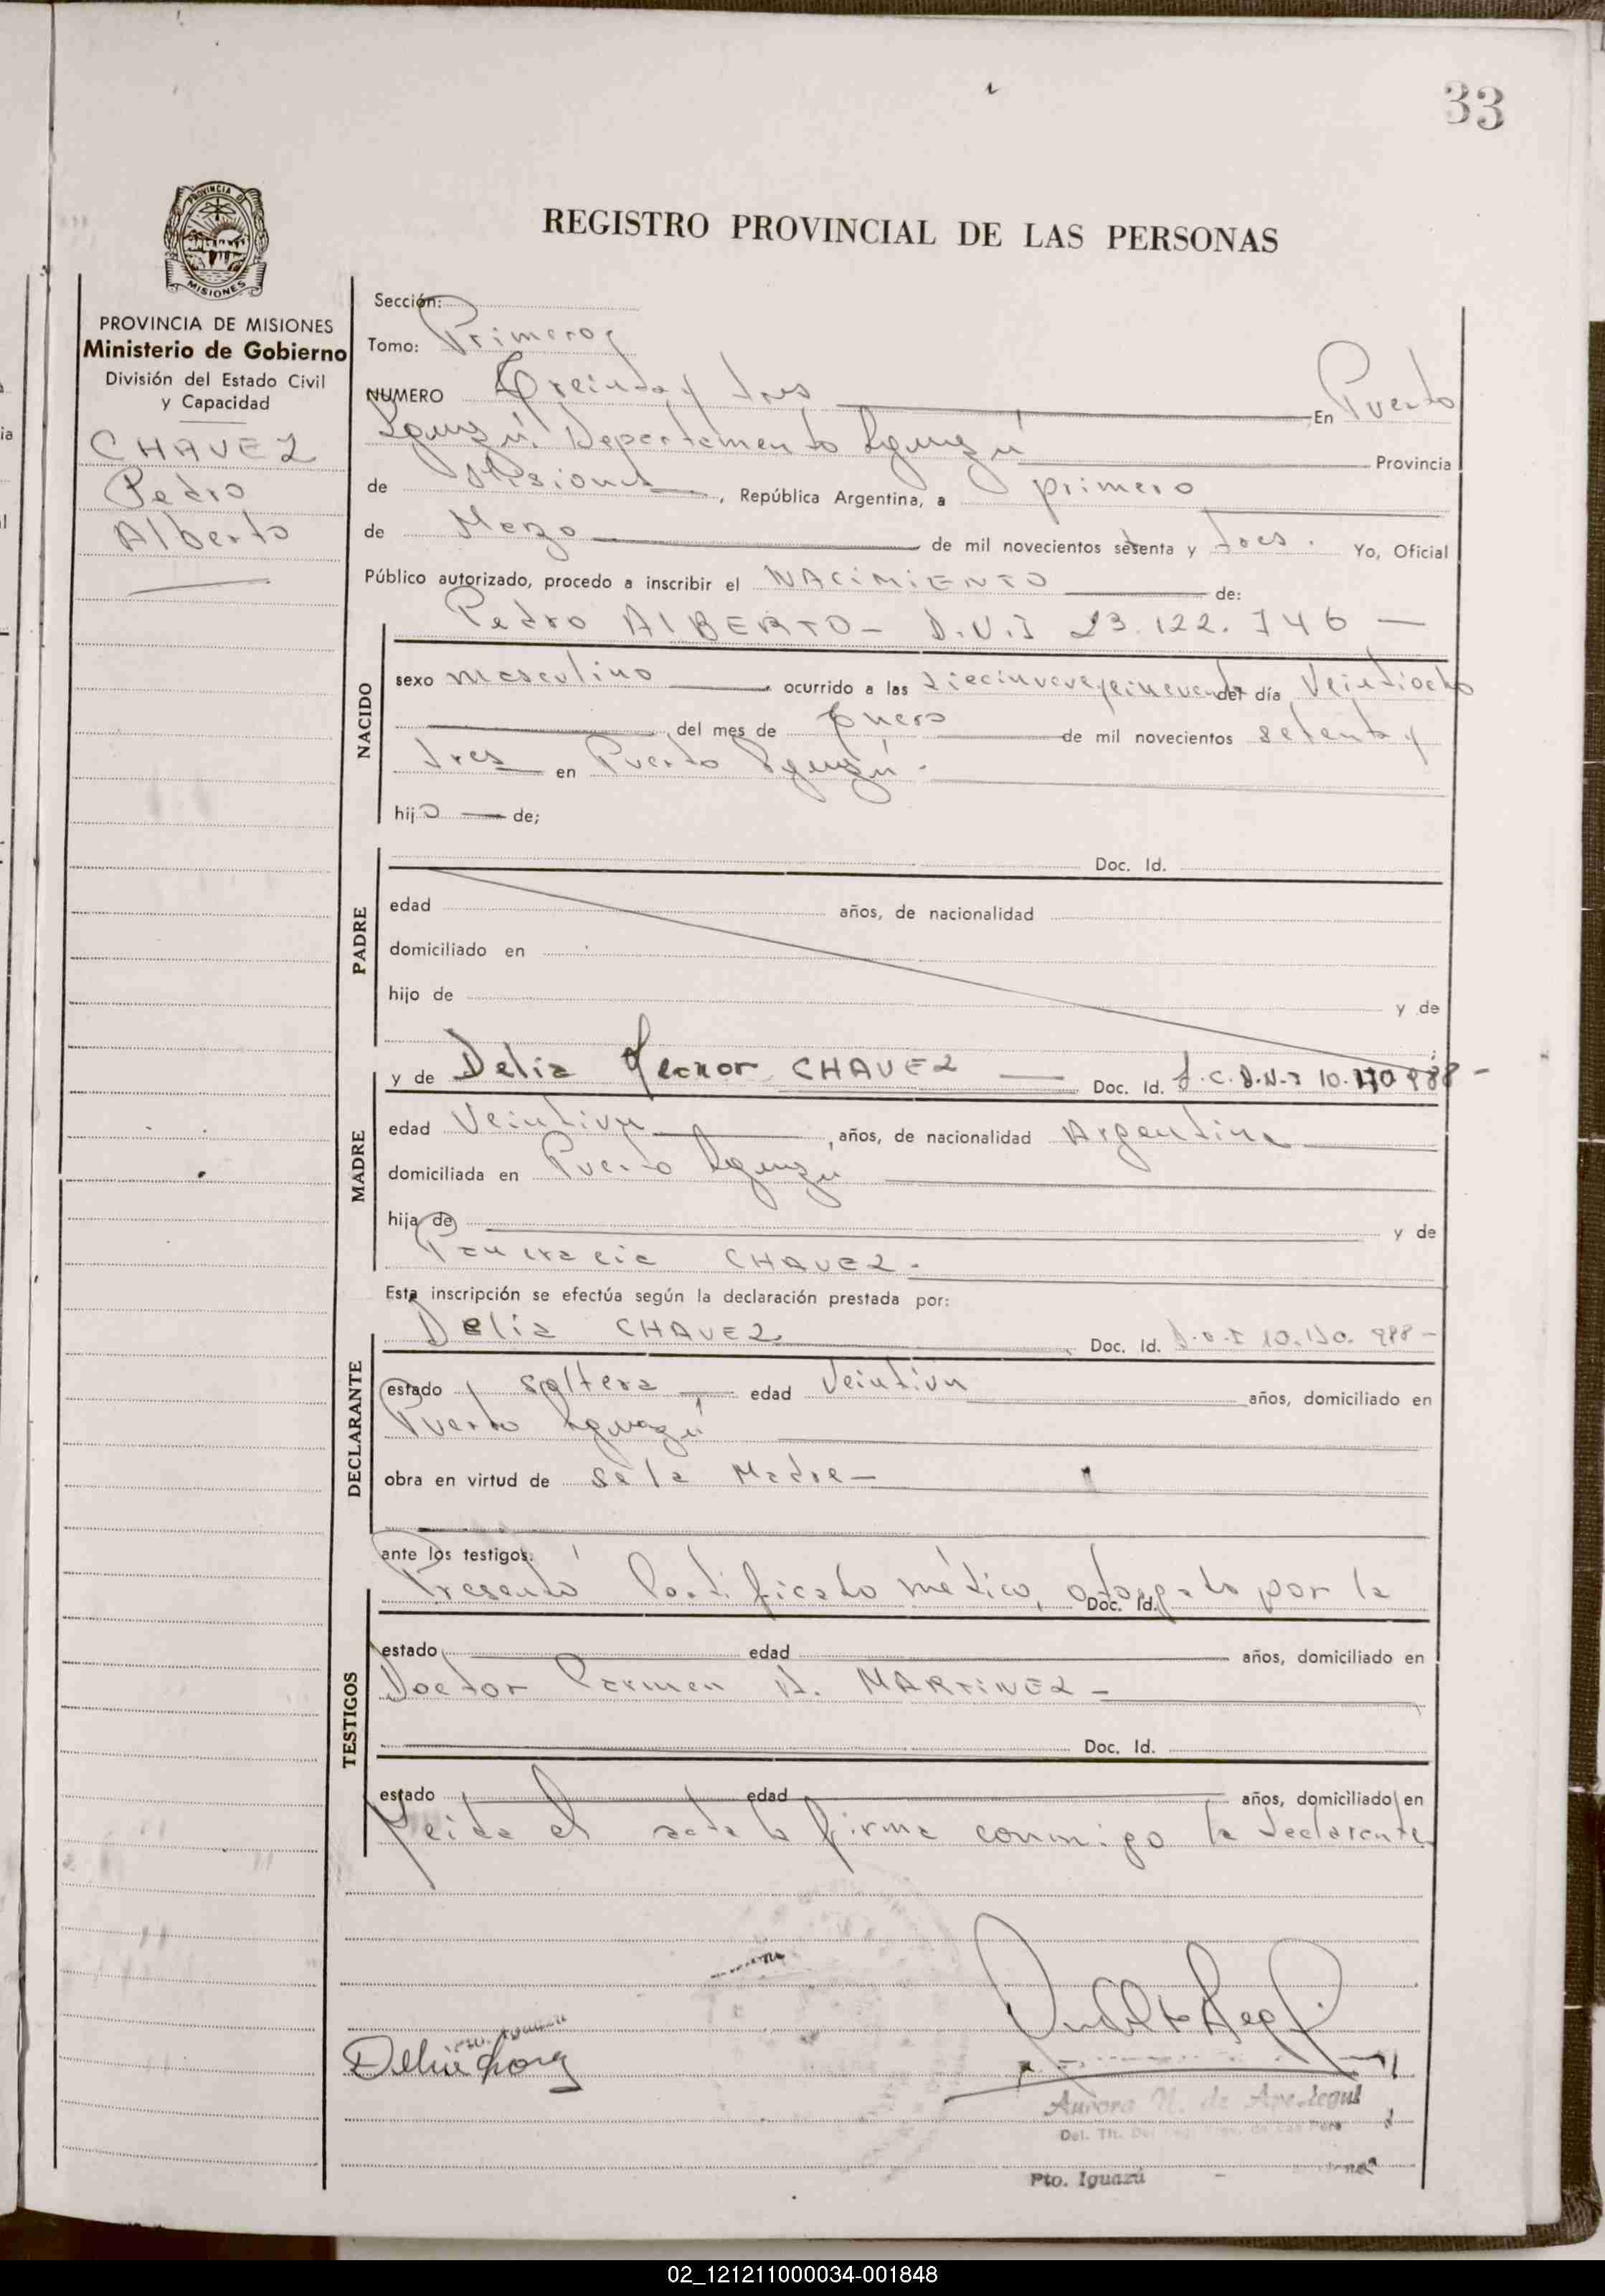 33
PROVINCIA DE
MISIONES
REGISTRO PROVINCIAL DE LAS PERSONAS
PROVINCIA DE MISIONES
Ministerio de Gobierno
División del Estado Civil
y Capacidad
CHAVEZ
Pedro
Alberto
Sección:
Tomo: Primero
NUMERO Treinta y tres En Puerto
Iguazú. Departamento Iguazú Provincia
de Misiones, República Argentina, a primero
de Marzo de mil novecientos setenta y tres. Yo, Oficial
Público autorizado, procedo a inscribir el NACIMIENTO de:
Pedro ALBERTO - D.N.I 23.122.746 —
NACIDO
sexo masculino ocurrido a las diecinueve y cincuenta del día Veintiocho
del mes de Enero de mil novecientos setenta y
tres en Puerto Iguazú.
hijo de;
PADRE
Doc. Id.
edad años, de nacionalidad
domiciliado en
hijo de y de
MADRE
y de Delia Leonor CHAVEZ — Doc. Id. L.C.D.N.I 10.170988 -
edad Veintiun, años, de nacionalidad Argentina
domiciliada en Puerto Iguazú
hija de y de
Pancracia CHAVEZ.
Esta inscripción se efectúa según la declaración prestada por:
DECLARANTE
Delia CHAVEZ Doc. Id. 988 -
estado soltera edad Veintiun años, domiciliado en
Puerto Iguazú
obra en virtud de se la Madre -
ante los testigos:
TESTIGOS
Presentó Certificado médico, otorgado por la
Doc. Id.
estado edad años, domiciliado en
Doctor Carmen N. MARTINEZ -
Doc. Id.
estado edad años, domiciliado en
Leida el acta la firma conmigo la declarante
Pto. Iguazú
Delia
Aurora N. de
Del. Tit.
Pto. Iguazú
02_121211000034-001848